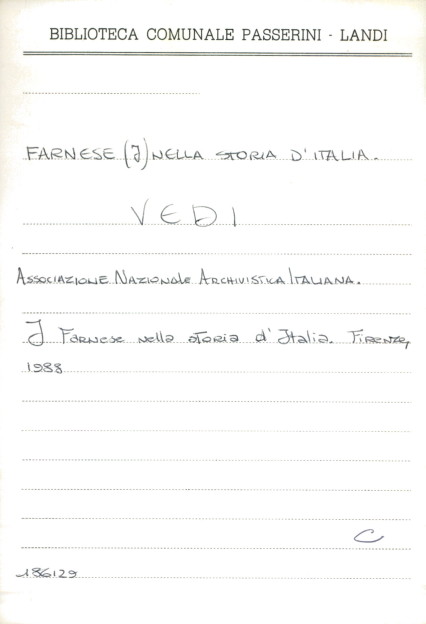 BIBLIOTECA COMUNALE PASSERINI - LANDI
FARNESE (I) NELLA STORIA D'ITALIA.
VEDI
ASSOCIAZIONE NAZIONALE ARCHIVISTICA ITALIANA.
I Farnese nella storia d'Italia. FIRENZE,
1988
C
186129